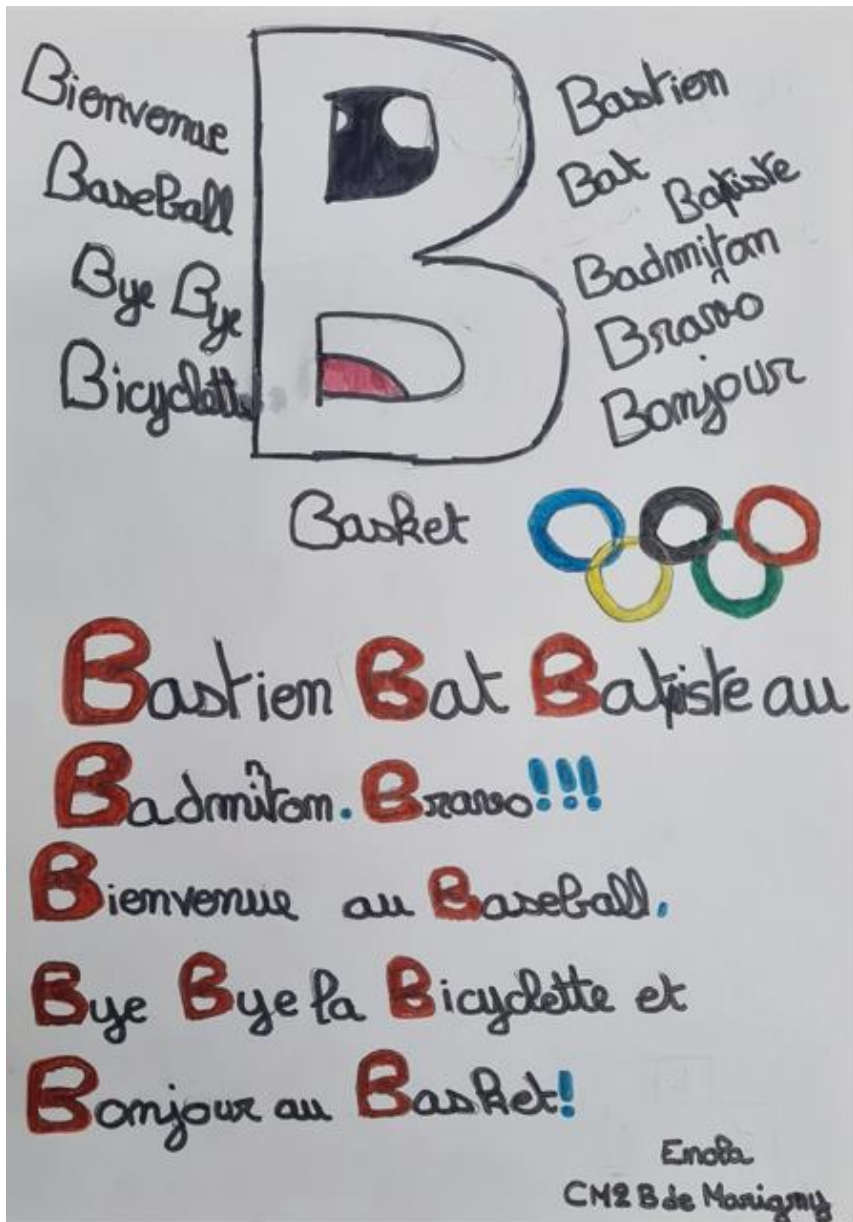 Bienvenue
Baseball
Bye Bye
Bicyclette
Bastien
Bat
Baptiste
Badminton
Bravo
Bonjour
Basket
Bastien Bat Baptiste au
Badminton. Bravo!!!
Bienvenue au Baseball.
Bye Bye la Bicyclette et
Bonjour au Basket!
Enola
CM2 B de Marigny